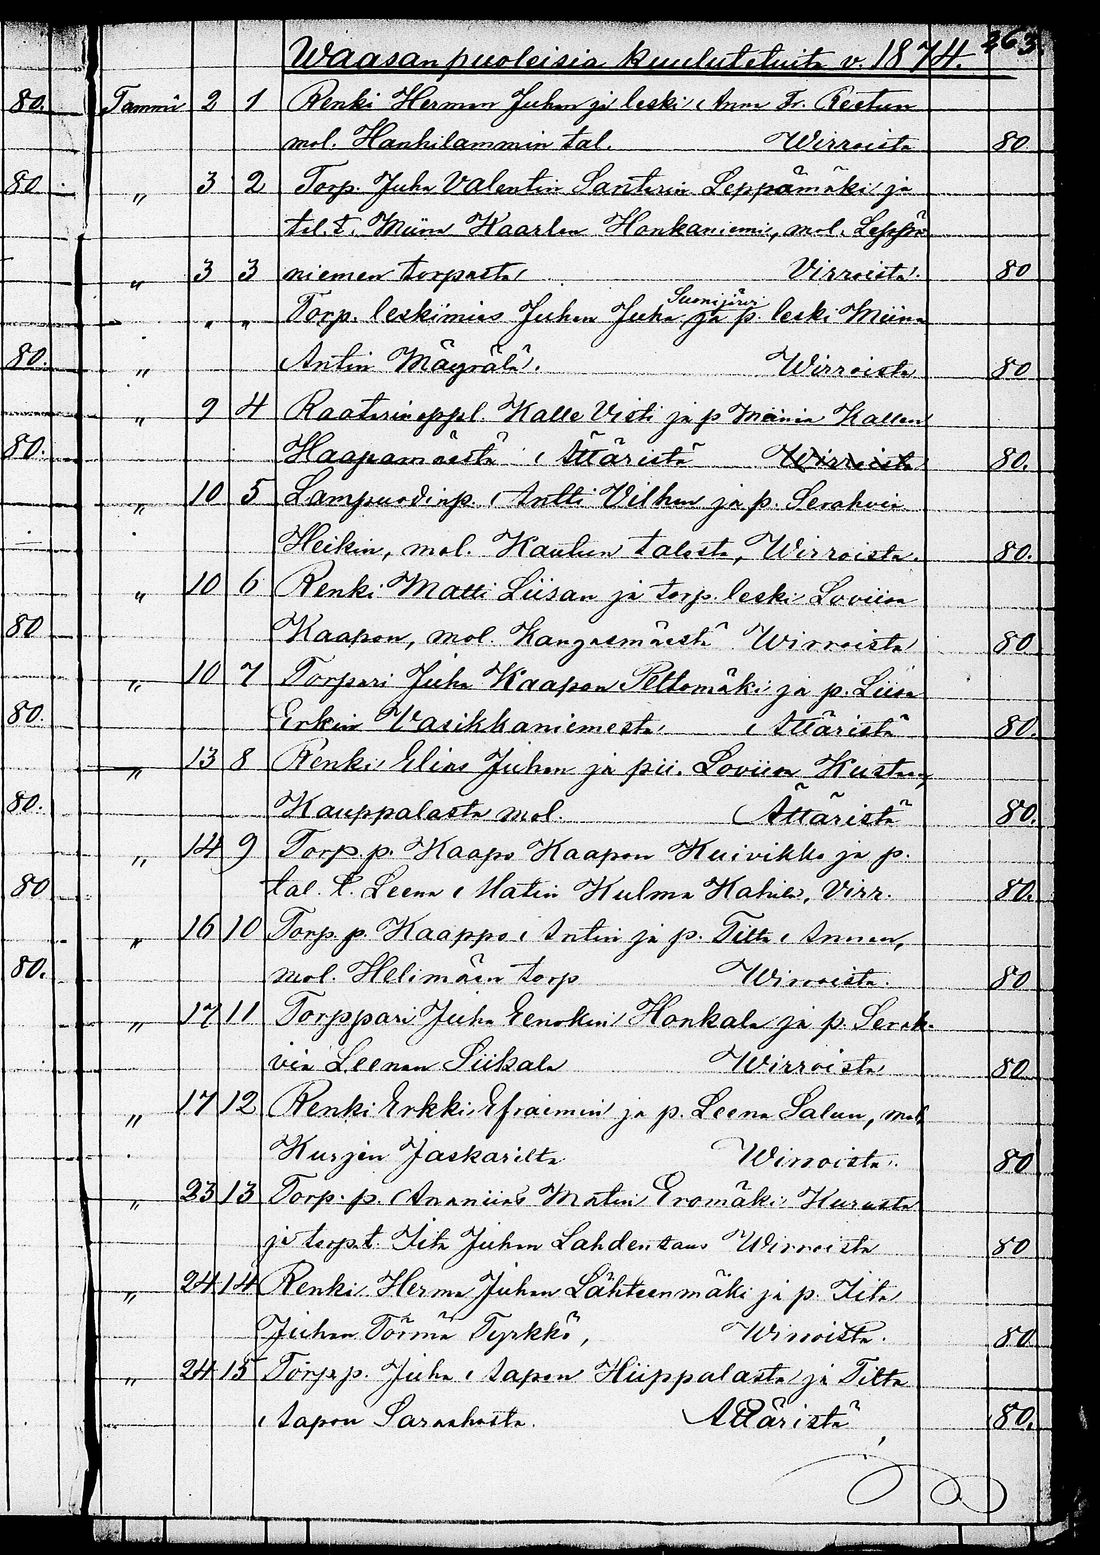 263.
Waasanpuoleisia kuulutetuita v. 1874.
80. Tammi 2 1 Renki Herman Juhan ja leski Anna Fr. Eeetun
mol. Hanhilammin tal. Wirroista 80
80 " 3 2 Torp. Juha Valentin Santerin Leppämäki ja
tal. t. Miina Kaarlen Honkaniemi, mol. Leppä-
" 3 3 niemen torpasta Virroista. 80
" " Torp. leskimies Juhan Juha Suonijärvi ja p. leski Miina
80. " Antin Mäyrälä. Wirroista 80
" 9 4 Raatarinoppl. Kalle Visti ja p Kallen
80. Haapamäestä Ättäristä Wirroista 80.
" 10 5 Lampuodinp. Antti Vilhen ja p. Serahvia
Heikin, mol. talosta, Wirroista. 80.
" 10 6 Renki Matti Liisan ja torp. leski Loviisa
80 Kaapon, mol. Kangasmäestä Wirroista 80
" 10 7 Torpari Juha Kaapon Peltomäki ja p. Liisa
80. Erkin Vasikkaniemestä Attäristä 80.
" 13 8 Renki Elias Juhan ja pii. Loviisa Kustaan,
80. Kauppalasta mol. Ättäristä 80.
" 14 9 Torp. p. Kaapo Kaapon Kuivikko ja p.
80 tal. t. Leena Matin Kulma Virr. 80.
" 16 10 Torp. p. Kaappo Antin ja p. Tilta Annan,
80. mol. Helimäen torp Wirroista. 80
" 17 11 Torppari Juha Eenokin Honkala ja p. Serah-
via Leenan Siikala Wirroista 80
" 17 12 Renki Erkki Efraimin ja p. Leena Salun, mol.
Kurjen Jaskarilta Wirroista. 80
" 23 13 Torp. p. Ananias Matin Eromäki Kurasta
ja torp. t. Iita Juhan Wirroista 80
" 24 14 Renki Herma Juhan Lähteenmäki ja p. Iita
Juhan Törmä Tyrkkö, Wirroista. 80
" 24 15 Torp. p. Juha Aapon Hiippalasta ja Tilta
Aapon Saraahosta. Attäristä 80.